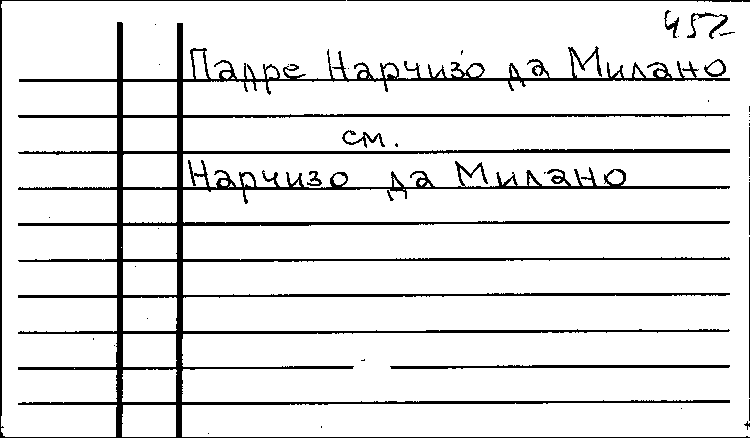 452
Падре Нарчизо да Милано
см.
Нарчизо да Милано